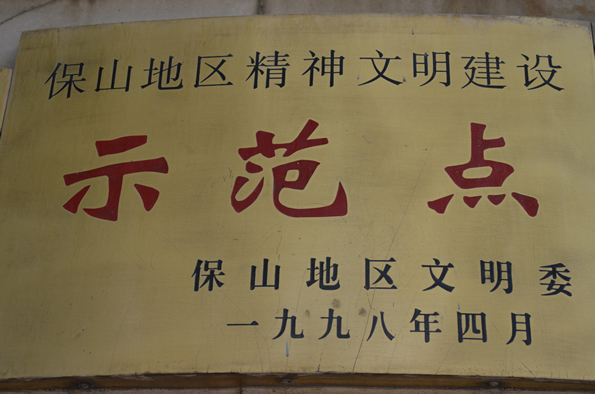 保山地区精神文明建设
示范点
保山地区文明委
一九九八年四月